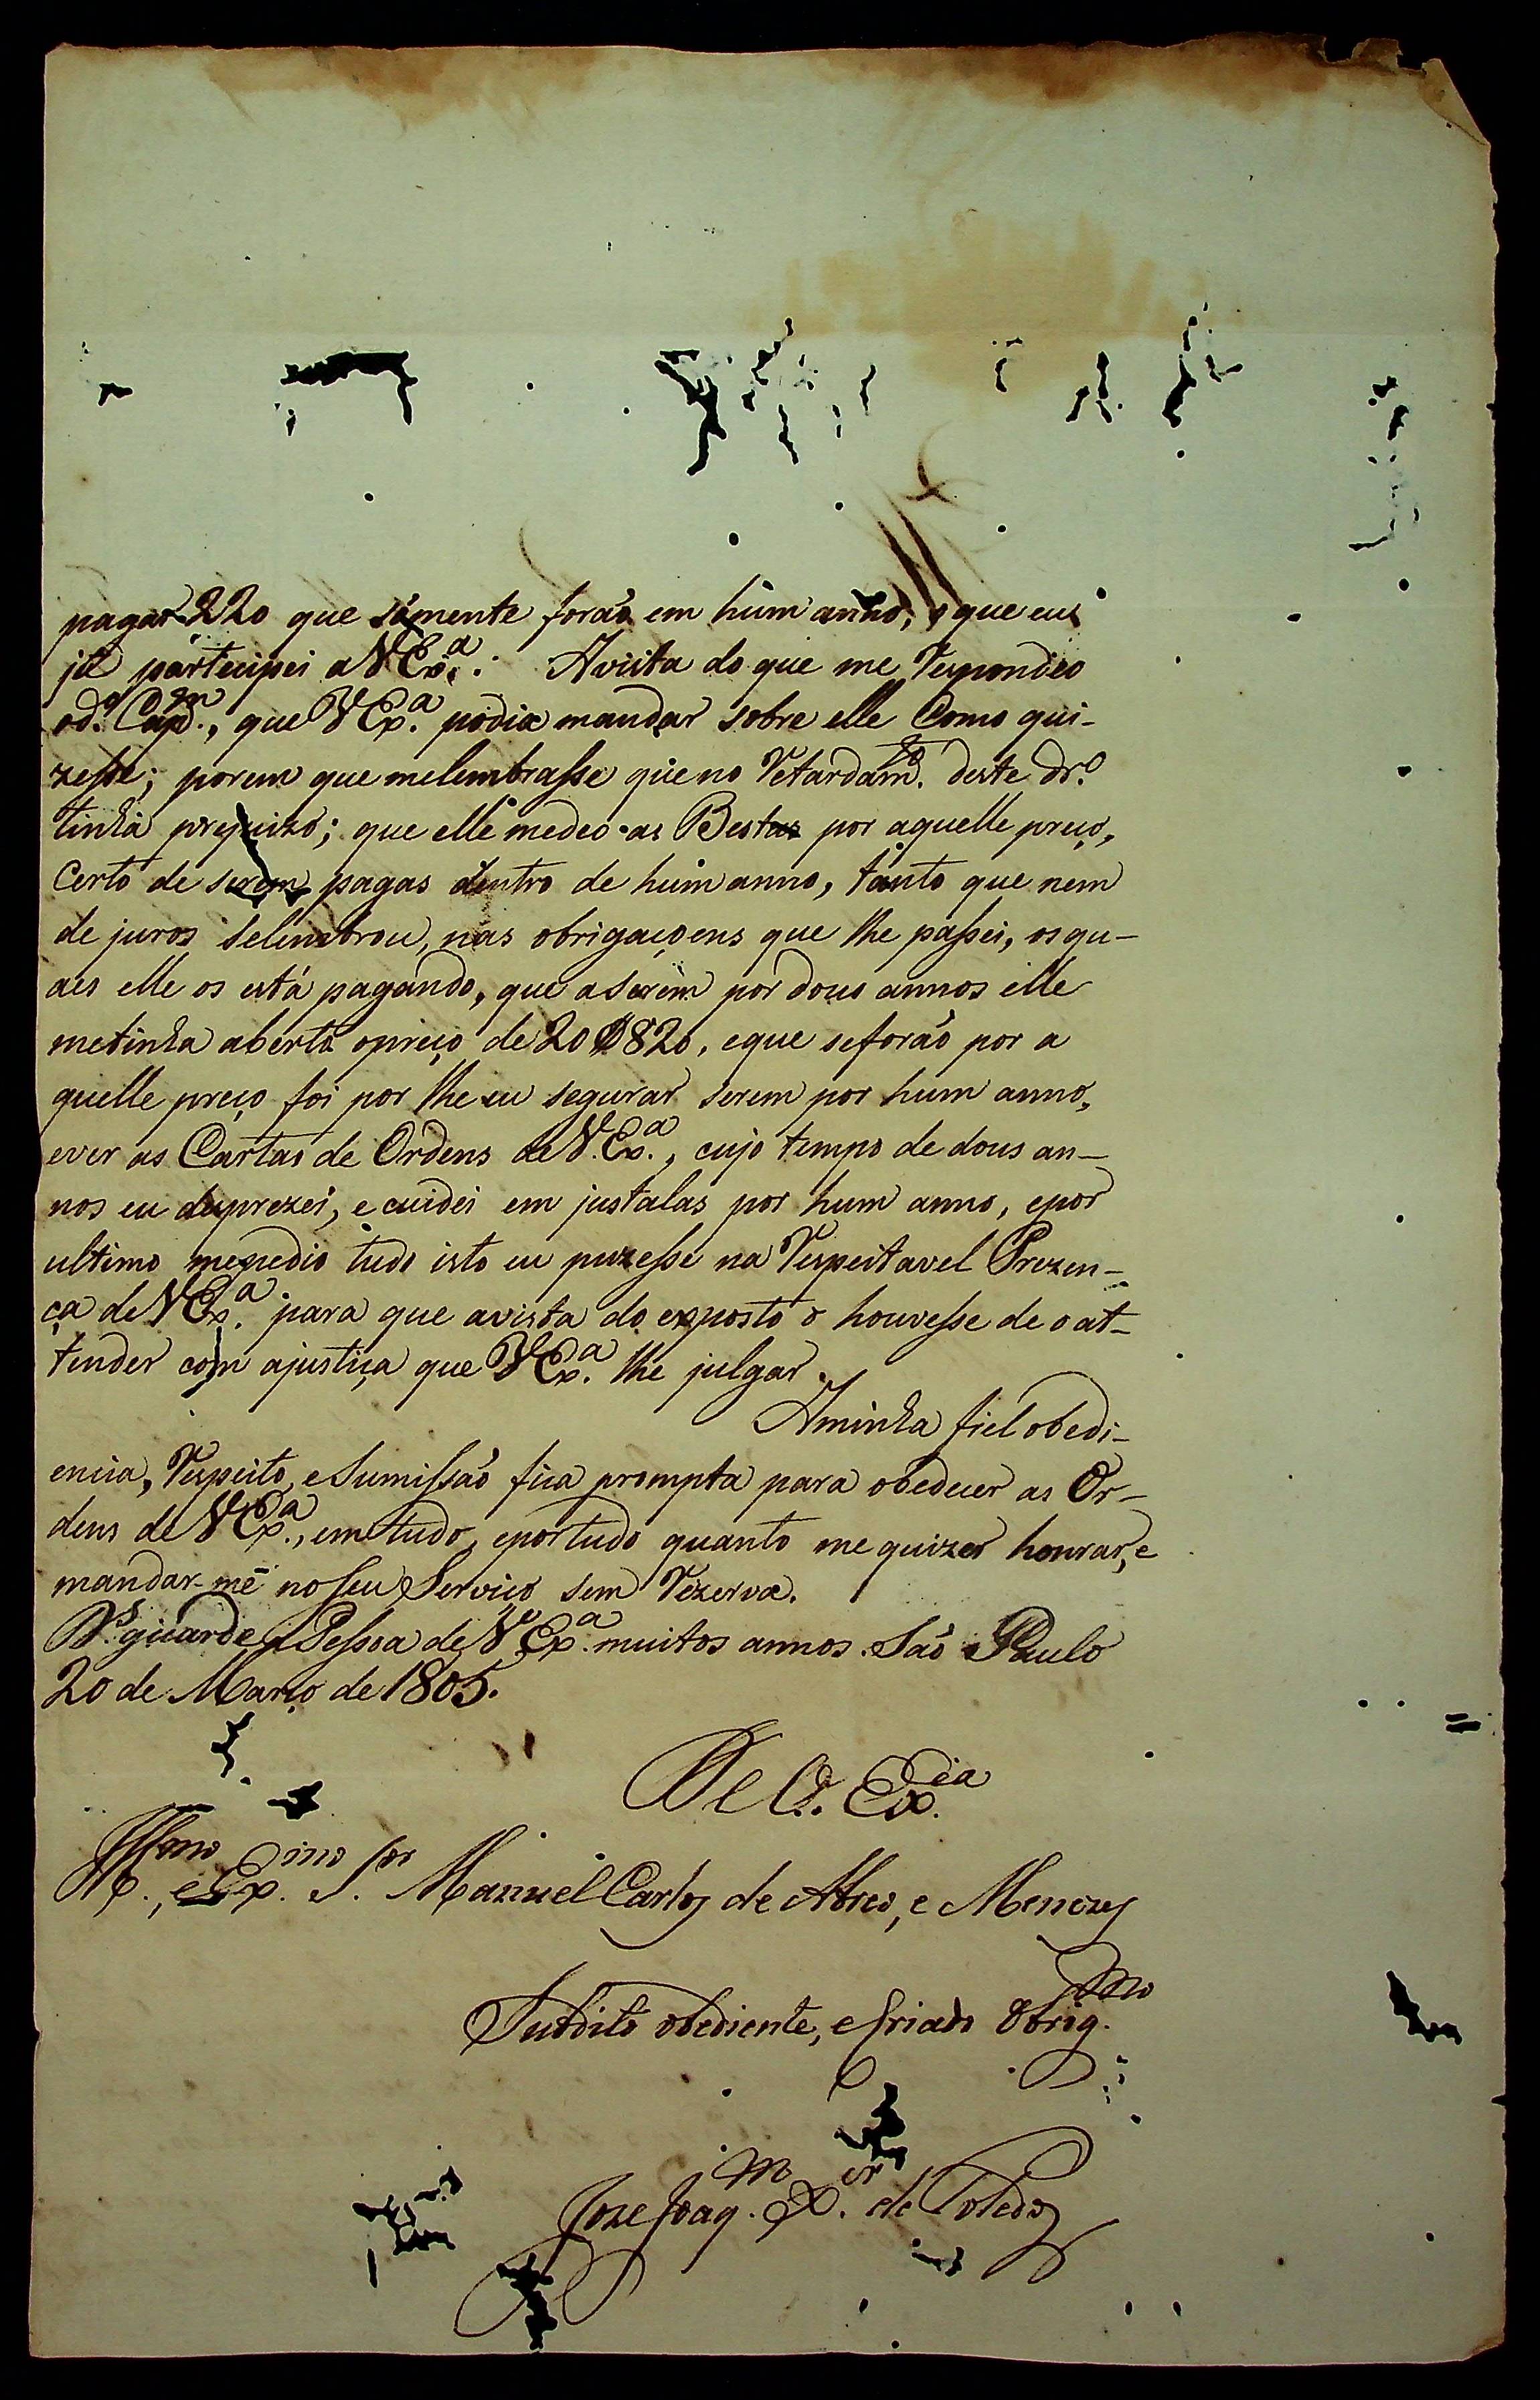 pagar 220 que sómente forão em hum anno, o que eu
já partecipei a VEx.ª: Avista do que me Respondeo
od.º Cap.m, que VEx.ª podia mandar sobre elle Como qui-
zesse; porem que melembrasse que no Retardam.to deste dr.º
tinha prejuizo; que elle medeo as Bestas por aquelle preço,
Certo de serem pagas dentro de hum anno, tanto que nem
de juros selembrou, nas obrigaçoens que lhe passei, osqu-
aes elle os está pagando, que aserem por dous annos elle
metinha aberto opreço de 20$820, eque seforão por a
quelle preço foi por lhe eu segurar serem por hum anno,
ever as Cartas de Ordens de V.Ex.ª, cujo tempo de dous an-
nos eu desprezei, e cuidei em justalas por hum anno, epor
ultimo mepedio tudo isto eu puzesse na Respeitavel Prezen-
ça de VEx.ª para que avista do exposto o houvesse de o at-
tender com ajustiça que VEx.ª lhe julgar.
Aminha fiel obedi-
encia, Respeito, e Sumissão fica prompta para obedecer as Or-
dens de VEx.ª, em tudo, eportudo quanto me quizer honrar, e
mandar-me no seu Serviço sem Rezerva.
D.s guarde a Pessoa de V.Ex.ª muitos annos. São Paulo
20 de Março de 1805.
De V. Ex.cia
Ill.mo, e Ex.mo S.or Manuel Carlos de Abreo, e Menezes
Subdito obediente, e Criado Obrig.mo
Joze Joaq.m X.er de Toledo